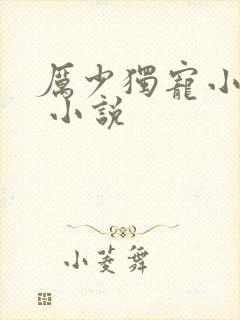 厲少獨寵小
小說
小菱舞